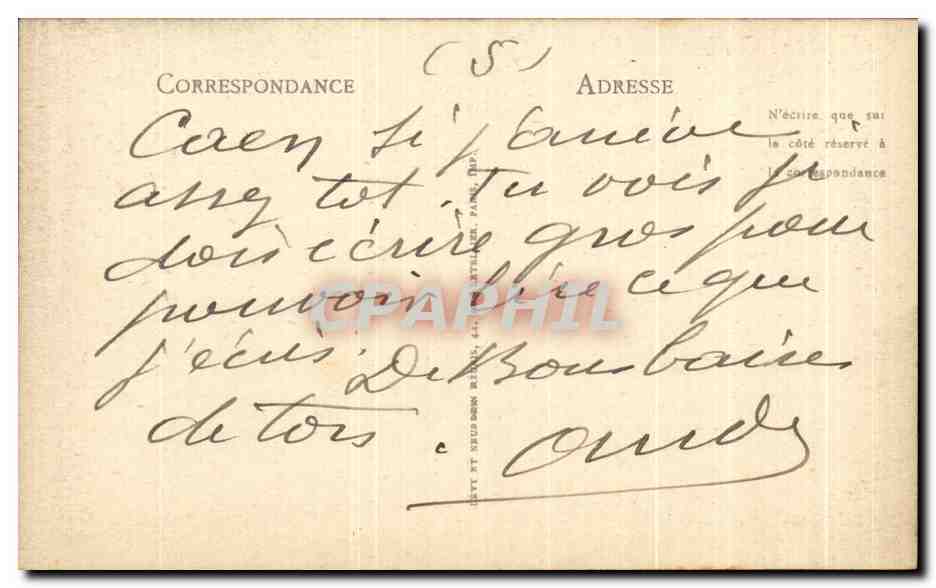 (5)
CORRESPONDANCE
ADRESSE
N'écrire que sur
le côté réservé à
la correspondance
Caen si j'arrive
assez tot. Tu vois je
dois écrire gros pour
pouvoir lire ce que
j'écris. De Bons baisers
de tous.
LEVY ET NEURDEIN REUNIS, 44, LETELLIER, PARIS, IMP.
CPAPHIL